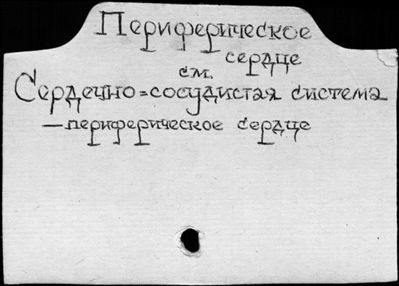 Периферическое
сердце
см.
Сердечно=сосудистая система
—периферическое сердце